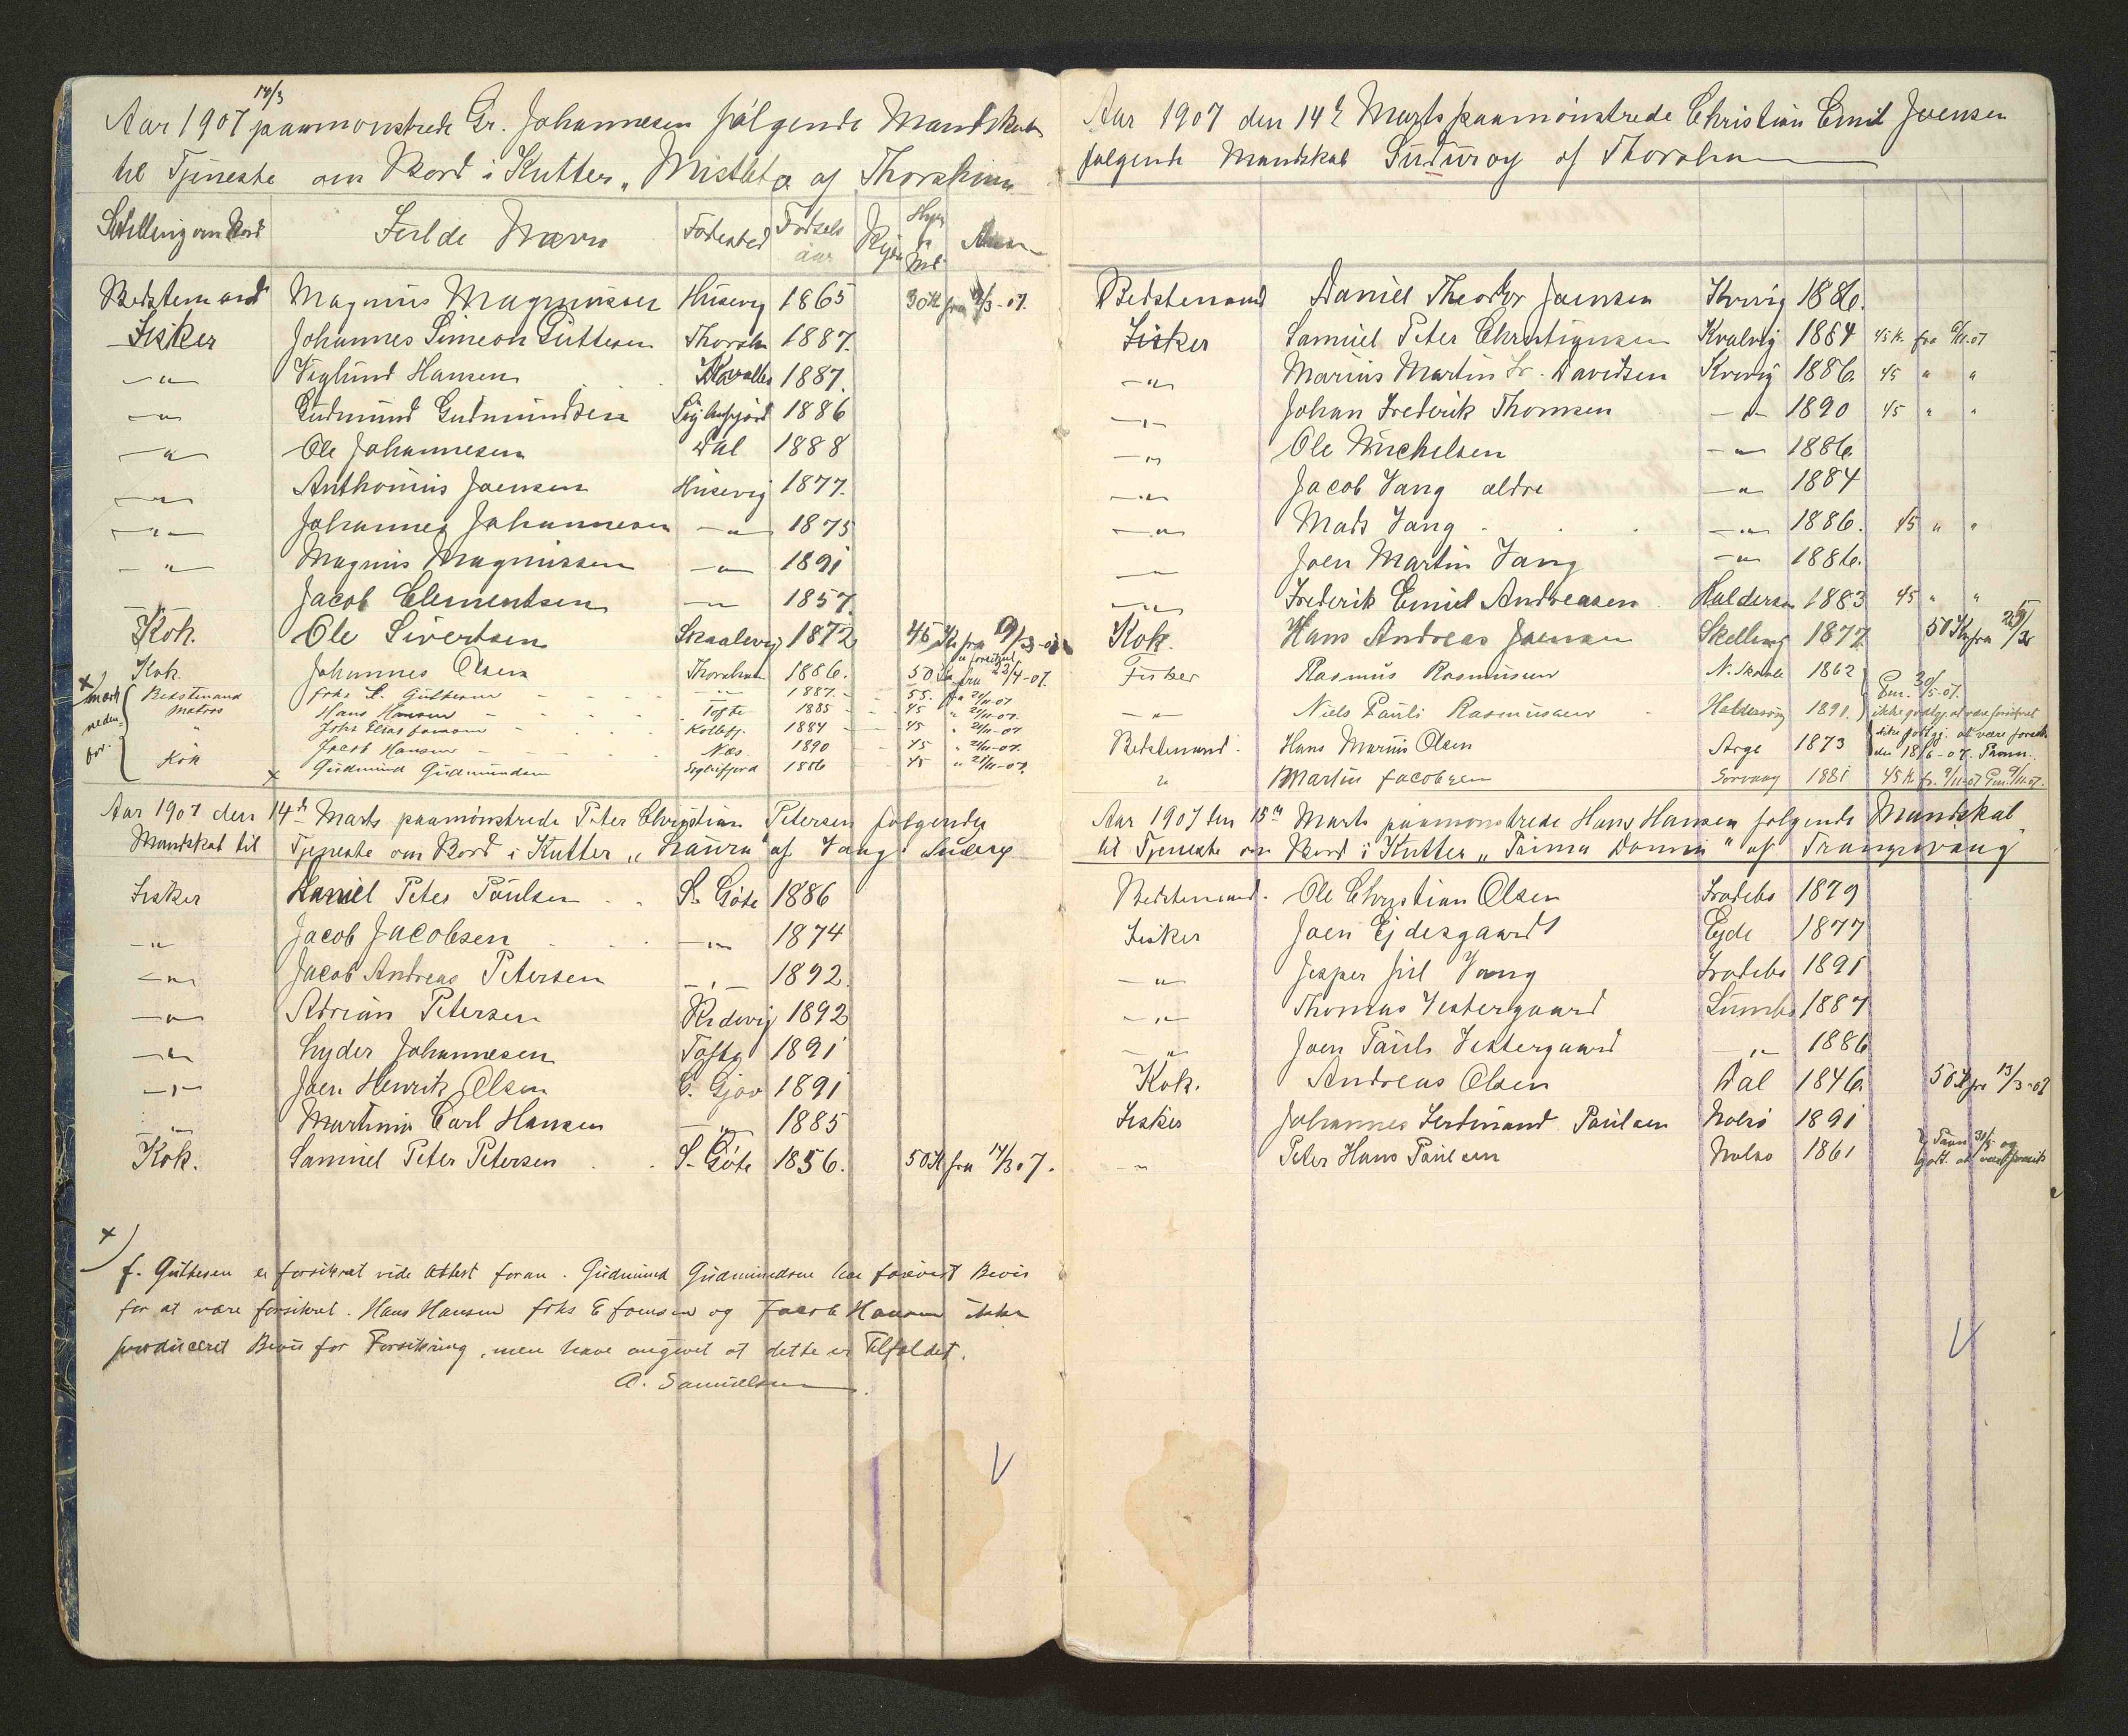 14/3
Aar 1907 paamonstrede Gr. Johannesen følgende Mandskab
til Tjeneste om Bord i Kutter „Mistletoe af Thorshavn
Stilling om Bord Fulde Navn Fødested Fødsels aar Hyre
Bedstemand Magnus Magnussen Húsevig 1865 30 Kr fra /3-07.
Fisker Johannes Simeon Guttesen Thorsh 1887.
—„— Viglund Hansen 1887.
—„— Gudmund Gudmundsen Siglufjord 1886
—„— Ole Johannesen Dal 1888
—„— Anthonius Joensen Húsevig 1877.
—„— Johannes Johannesen —„— 1875
—„— Magnus Magnussen —„— 1891
Jacob Clementsen —„— 1857
Kok. Ole Sivertsen Skaalevig 1872 45 Kr fra 19/3-07
Kok. Johannes Olsen Thorshavn 1886. 50 Kr fra 23/4-07.
Bedstmand Johs S. Guttesen —„— 1887. 55. fra 21/11-07
Matros Hans Hansen Tofte 1885 45 „ 21/11-07.
„ Johs Elias Joensen Kollefj. 1884 45 „ 21/11-07
„ Jacob Hansen Næs 1890 45 „ 21/11-07.
Kok × Gudmund Gudmundsen Siglufjord 1886 45 „ 21/11-07.
×) mærk neden- for.
Aar 1907 den 14de Marts paamönstrede Peter Christian Petersen følgende
Mandskab til Tjeneste om Bord i Kutter „Laura" af Vaag Suderø
Fisker Daniel Peter Poulsen S. Gøte 1886
—„— Jacob Jacobsen —„— 1874
—„— Jacob Andreas Petersen —„— 1892.
—„— Adrian Petersen Rdevig 1892
—„— Lyder Johannesen Tofte 1891
—„— Joen Henrik Olsen Gjov 1891
—„— Martinus Carl Hansen —„— 1885
Kok. Samuel Peter Petersen S. Gøte 1856. 50 Kr fra 14/3 07.
×)
J. Guttesen er forsikret vide Attest foran. Gudmund Gudmundsen har forevist Bevis
for at være forsikret. Hans Hansen Johs E Joensen og Jacob Hansen ikke
produceret Bevis for Forsikring, men have angivet at dette er Tilfældet.
A. Samuelsen
V
Aar 1907 den 14de Marts paamönstrede Christian Emil Joensen
følgende Mandskab Suduroy af Thorshavn
Bedstemand Daniel Theodor Joensen Kvivig 1886.
Fisker Samuel Peter Christiansen Kvalvig 1884 45 Kr. fra 9/11-07
—„— Marius Martin Fr. Davidsen Kvivig 1886. 45 „ „
—„— Johan Frederik Thomsen —„— 1890 45 „ „
—„— Ole Michelsen —„— 1886.
—„— Jacob Vang ældre —„— 1884
—„— Mads Vang —„— 1886. 45 „ „
—„— Joen Martin Vang —„— 1886.
—„— Frederik Emil Andreasen Haldersv 1883 45 „ „
Kok. Hans Andreas Joensen Skelling 1877. 50 Kr fra
Fisker Rasmus Rasmussen N. Skaale 1862
—„— Niels Pauli Rasmussen Haldersvig 1891. ikke godtgj. at være forsikret
Bedstemand. Hans Marius Olsen Arge 1873 ikke godtgj. at være forsik. den 18/6-07.
„ Martin Jacobsen Sorvaag 1881 45 Kr. fr. 9/11-07
Aar 1907 den 15de Marts paamonstrede Hans Hansen følgende Mandskab
til Tjeneste om Bord i Kutter „Prima Donna" af Trangisvaag
Bedstemand. Ole Christian Olsen Frodebo 1879
Fisker Joen Ejdesgaard Ejde 1877
—„— Jesper Juel Vang Frodebo 1891
—„— Thomas Vestergaard Sumbø 1887
—„— Joen Pauli Vestergaard —„— 1886
Kok. Andreas Olsen Dal 1846. 50 Kr fra 13/3-07
Fisker Johannes Ferdinand Poulsen Nolsö 1891
—„— Peter Hans Poulsen Nolsö 1861
V